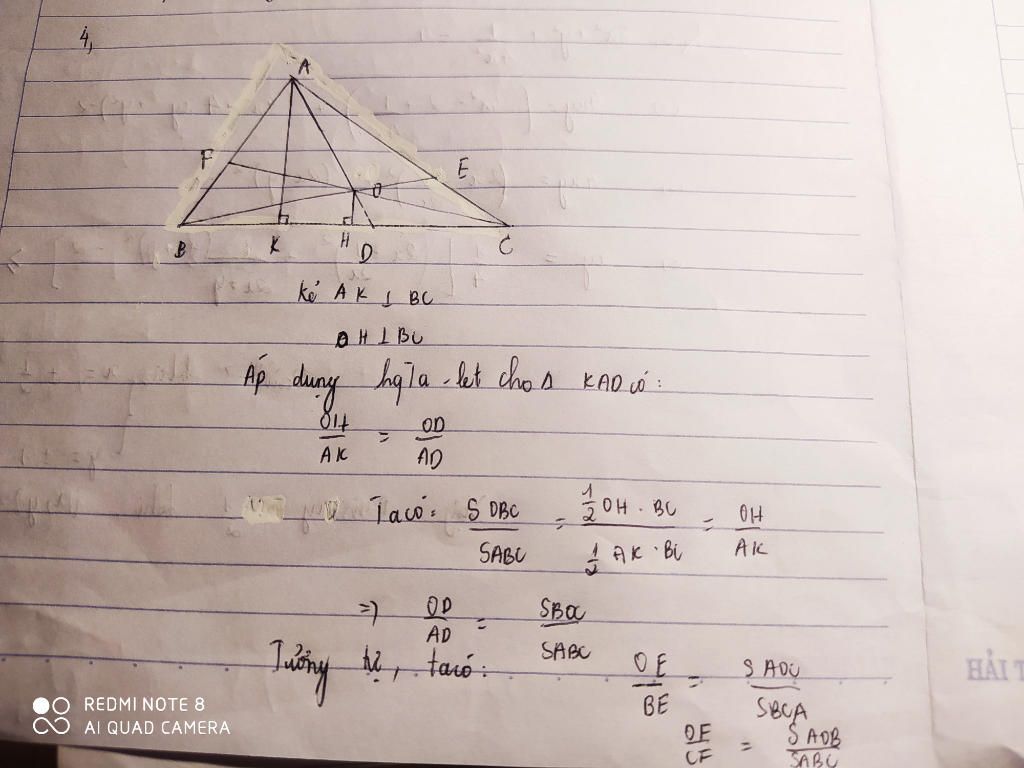 4,
A
F
E
O
B K H D C
Kẻ AK ⊥ BC
OH ⊥ BC
Áp dụng hq Ta-let cho Δ KAD có:
OH/AK = OD/AD
Ta có: SOBC/SABC = 1/2 OH . BC / 1/2 AK . BC = OH/AK
=> OD/AD = SBOC/SABC
Tương tự, ta có: OE/BE = SAOC/SBCA
OF/CF = SAOB/SABC
HẢI T
REDMI NOTE 8
AI QUAD CAMERA